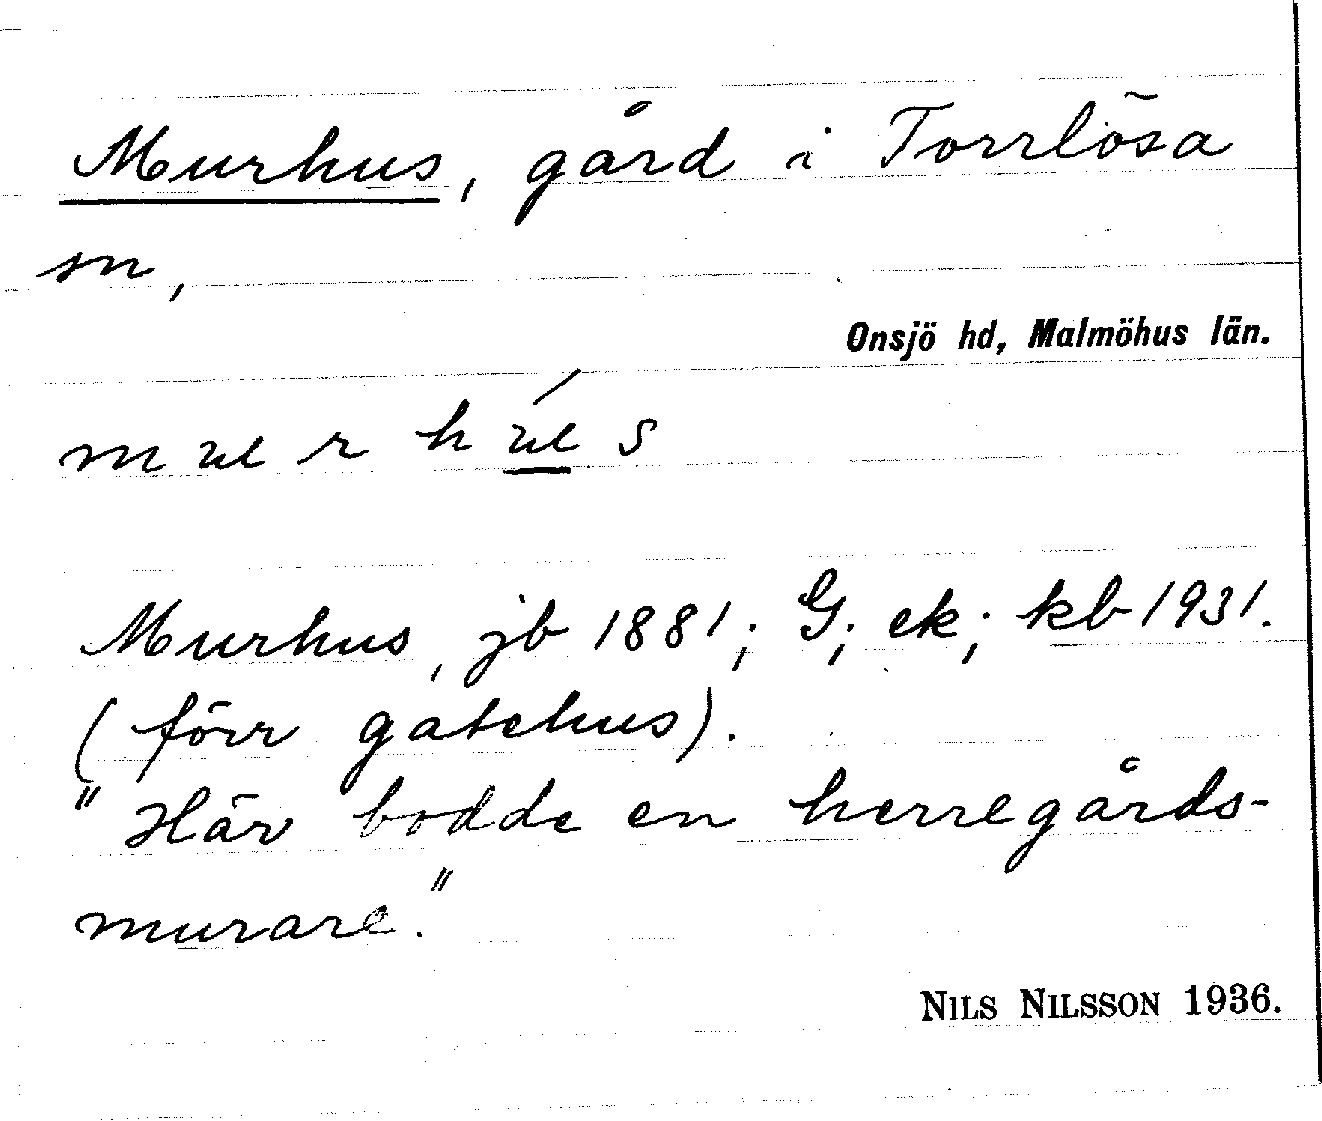 Murhus, gård i Torrlösa
sn,
Onsjö hd, Malmöhus län.
m u r h ú s
Murhus, jb 1881; G; ek; kb 1931.
(förr gatehus).
"Här bodde en herregårds-
murare."
NILS NILSSON 1936.